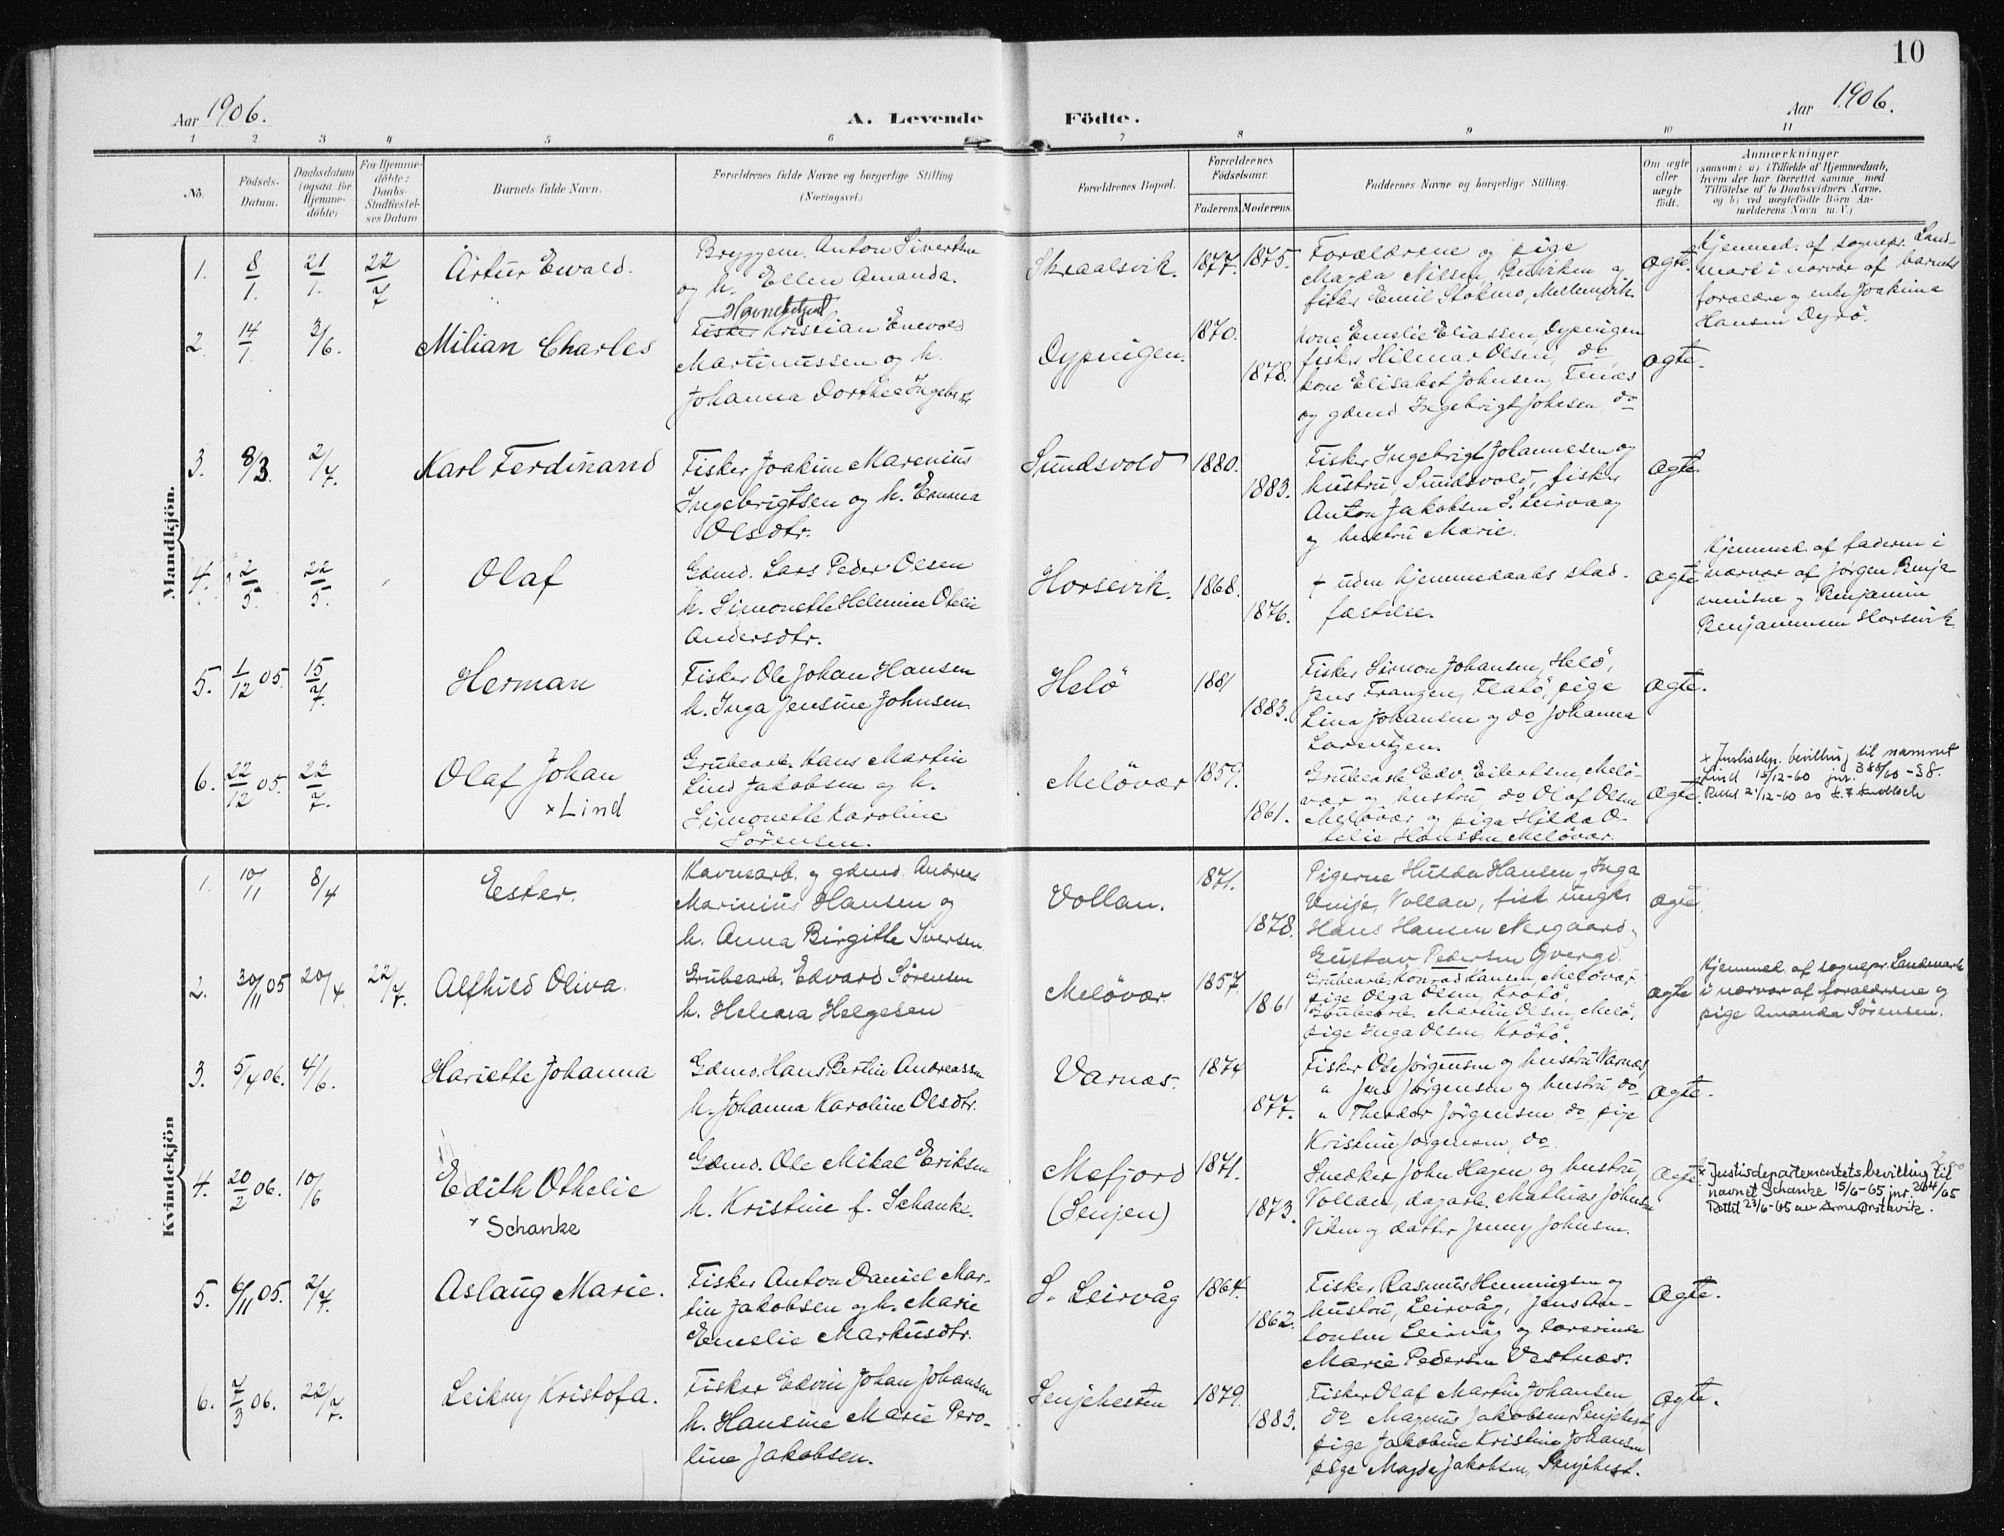 10
Aar 1906.
A. Levende Födte.
Aar 1906.
1 2 3 4 5 6 7 8 9 10 11
No.
Födsels-
Datum.
Daabsdatum
(ogsaa for
Hjemme-
döbte)
For Hjemme-
döbte:
Daabs-
Stadfæstel-
ses Datum
Barnets fulde Navn.
Forældrenes fulde Navne og borgerlige Stilling.
(Næringsvei.)
Forældrenes Bopæl.
Forældrenes
Födselsaar.
Faderens.
Moderens.
Faddernes Navne og borgerlige Stilling.
Om ægte
eller
uægte
födt.
Anmærkninger
(saasom: a) i Tilfælde af Hjemmedaab,
hvem der har forrettet samme, med
Tilföielse af to Daabsvidners Navne,
og b) ved uægtefödte Börn An-
melderens Navn m. V.)
Mandkjön.
1. 8/1. 21/1. 22/7 Artur Ewald.
Bryggem. Anton Sivertsen
og h. Ellen Amanda.
Skraalsvik. 1877. 1875.
Forældrene og pige
Magda Nilsen, og
fisker Emil Stokmo,
ægte.
Hjemmed. af sognepr. Land-
mark i nærvær af barnets
forældre og enke Joakima
Hansen Dyrö.
2. 14/1 3/6. Milian Charles
Fisker Kristian Enevold
Martinussen og h.
Johanna Dorthea Ingebr.
Dypingen. 1870. 1878.
Kone Emelie Eliassen, Dypingen
fisker Hilmar Olsen, do
kone Elisabet Johnsen,
og gdmd Ingebrigt Johnsen do
ægte.
3. 8/3. 2/7. Karl Ferdinand
Fisker Joakim Marenius
Ingebrigtsen og h. Emma
Olsdtr.
Sundsvold 1880. 1883.
Fisker Ingebrigt Johannesen og
hustru Sundsvold, fisker
Anton Jakobsen S. Leirvaag
og hustru Marie.
ægte.
4. 2/5. 22/5. Olaf
Gdmd. Lars Peder Olsen
h. Simonette Helmine Otelie
Andersdtr.
Horsevik. 1868. 1876.
+ uden hjemmedaabs stad-
fæstelse.
ægte
Hjemmed. af faderen i
nærvær af Jörgen Benja
minsne og Benjamin
Benjaminsen Horsevik
5. 1/12 05. 15/7. Herman
Fisker Ole Johan Hansen
h. Inga Jensine Johnsen
Helö 1881 1883.
Fisker Simon Johansen, Helö,
Jens Franzen, Flatö, pige
Lina Johansen og do Johanna
Lorentzen.
ægte.
6. 22/12 05. 22/7. Olaf Johan
x Lind
Grubearb. Hans Martin
Lind Jakobsen og h.
Simonette Karoline
Sörensen.
Melövær 1859. 1861.
Grubearb Edv. Eilertsen, Melö-
vær og hustru, do Olaf Olsen
Melövær og pige Hilda O-
telie Hansen Melövær.
ægte.
x Justisdep. bevilling til navnet
Lind 15/12-60 jnr. 388/60-S8.
Rettet 21/12-60 av
Kvindekjön
1. 10/1 8/4 Ester.
Havnearb. og gdmd. Andreas
Marinius Hansen og
h. Anna Birgitte Iversen
Vollan. 1871. 1878.
Pigerne Hulda Hansen og Inga
Unije, Vollan, fisk ungk.
Hans Hansen Nergaard,
Gustav Pedersen
ægte
2. 30/11 05 20/4 22/7. Alfhild Oliva.
Grubearb. Edvard Sörensen
h. Helena Helgesen
Melövær 1857. 1861
Grubearb. Konrad Hansen, Melövær,
pige Olga Olsen, Krötö,
Grubearb. Martin Olsen, Melö,
pige Inga Olsen, Krötö.
ægte
Hjemmed. af sognepr. Landmark
i nærvær af forældrene og
pige Amanda Sörensen.
3. 5/4 06. 4/6. Hariette Johanna
Gdmd. Hans Bertin Andreassen
h. Johanna Karoline Olsdtr.
Varnæs. 1874 1877.
Fisker Ole Jörgensen og hustru Varnæs,
" Jens Jörgensen og hustru do
" Theodor Jörgensen, do, pige
Kristine Jörgensen, do
ægte.
4. 20/2 06. 10/6 Edith Othelie
x Schanke
Gdmd. Ole Mikal Eriksen
h. Kristine f. Schanke.
Mefjord
(Senjen) 1871. 1873.
Snedker John Hagen og hustru
Vollan, dagarb. Mathias Johnsen
Viken og datter Jenny Johnsen.
ægte
x Justisdepartementets bevilling til
navnet Schanke 15/6-65 jnr. 204/65
Rettet 23/6-65 av Arne Ørstavik.
5. 6/11 05. 2/7. Aslaug Marie.
Fisker Anton Daniel Mar-
tin Jakobsen og h. Marie
Emelie Markusdtr.
S. Leirvåg 1864. 1862.
Fisker Rasmus Hemmingsen og
hustru, Leirvåg, Jens An-
tonsen Leirvåg og lærerinde
Marie Pedersen Vestnæs.
ægte.
6. 7/3 06. 22/7. Leikny Kristofa.
Fisker Edvin Johan Johansen
h. Hansine Marie Pero-
line Jakobsen.
Senjehesten 1879. 1883.
Fisker Olaf Martin Johansen,
do Magnus Jakobsen, Senjehest,
pige Jakobine Kristine Johansen
pige Magda Jakobsen, Senjehest.
ægte.